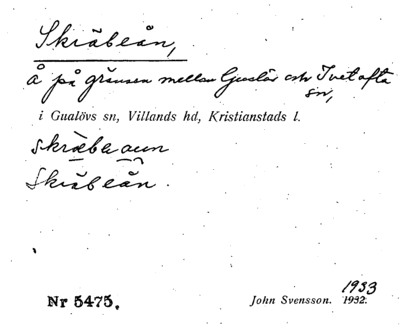 Skräbeån,
Å på gränsen mellan Gualöv och Ivetofta
sn,
i Gualövs sn, Villands hd, Kristianstads l.
skräbe aun
Skräbeån.
1933
Nr 5475. John Svensson. 1932.